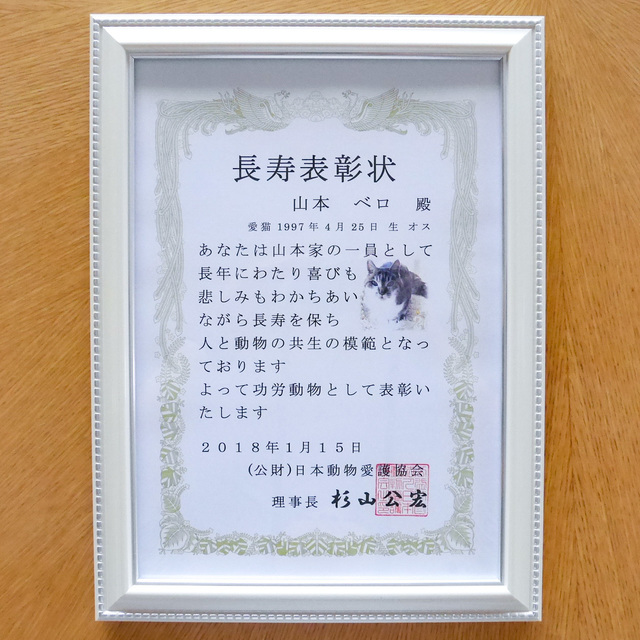 長寿表彰状
山本 ベロ 殿
愛猫1997年4月25日生 オス
あなたは山本家の一員として
長年にわたり喜びも
悲しみもわかちあい
ながら長寿を保ち
人と動物の共生の模範となっ
ております
よって功労動物として表彰い
たします
2018年1月15日
(公財)日本動物愛護協会
理事長 杉山公宏